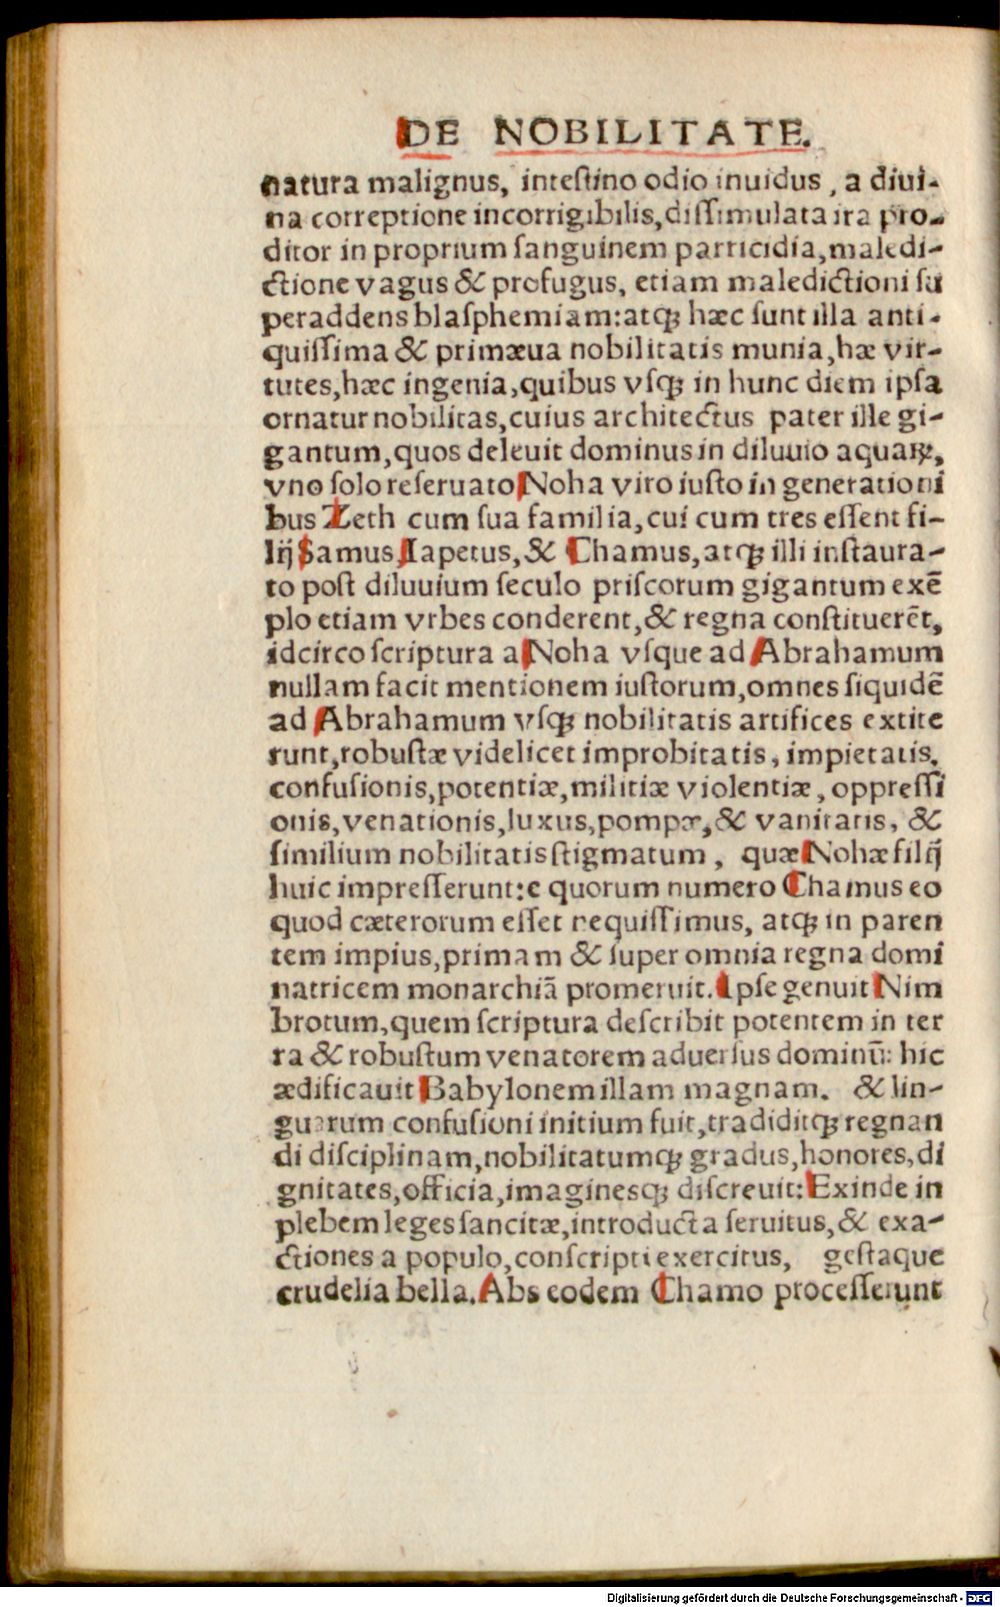 DE NOBILITATE.
natura malignus, intestino odio inuidus, a diui-
na correptione incorrigibilis, dissimulata ira pro-
ditor in proprium sanguinem parricidia, maledi-
ctione vagus & profugus, etiam maledictioni su
peraddens blasphemiam: atqȝ hæc sunt illa anti-
quissima & primæua nobilitatis munia, hæ vir-
tutes, hæc ingenia, quibus vsqȝ in hunc diem ipsa
ornatur nobilitas, cuius architectus pater ille gi-
gantum, quos deleuit dominus in diluuio aquaꝝ,
vno solo reseruato Noha viro iusto in generationi
bus Zeth cum sua familia, cui cum tres essent fi-
lij Samus, Iapetus, & Chamus, atqȝ illi instaura-
to post diluuium seculo priscorum gigantum exē
plo etiam vrbes conderent, & regna constituerēt,
idcirco scriptura a Noha vsque ad Abrahamum
nullam facit mentionem iustorum, omnes siquidē
ad Abrahamum vsqȝ nobilitatis artifices extite
runt, robustæ videlicet improbitatis, impietatis,
confusionis, potentiæ, militiæ violentiæ, oppressi
onis, venationis, luxus, pompæ, & vanitatis, &
similium nobilitatis stigmatum, quæ Nohæ filij
huic impresserunt: e quorum numero Chamus eo
quod cæterorum esset nequissimus, atqȝ in paren
tem impius, primam & super omnia regna domi
natricem monarchiā promeruit. Ipse genuit Nim
brotum, quem scriptura describit potentem in ter
ra & robustum venatorem aduersus dominū: hic
ædificauit Babylonem illam magnam. & lin-
guarum confusioni initium fuit, tradiditqȝ regnan
di disciplinam, nobilitatumqȝ gradus, honores, di
gnitates, officia, imaginesqȝ discreuit: Exinde in
plebem leges sancitæ, introducta seruitus, & exa-
ctiones a populo, conscripti exercitus, gestaque
crudelia bella. Abs eodem Chamo processerunt
Digitalisierung gefördert durch die Deutsche Forschungsgemeinschaft - DFG